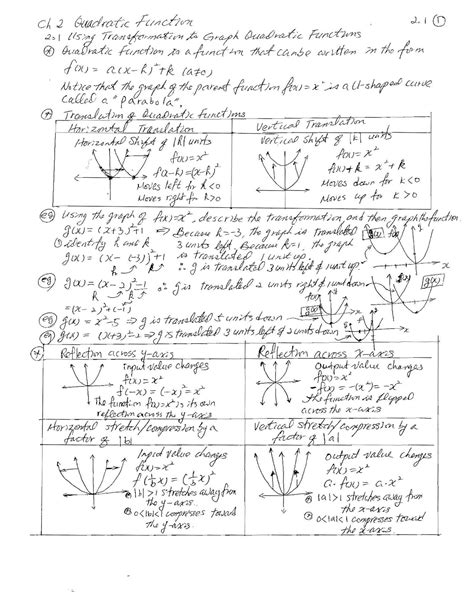 Ch 2 Quadratic Function 2.1 ①
2.1 Using Transformation to Graph Quadratic Functions
Quadratic Function is a function that can be written in the form
f(x) = a(x-h)²+k (a≠0)
Notice that the graph of the parent function f(x) = x² is a U-shaped curve
called a "Parabola".
Translation of Quadratic Functions
Horizontal Translation
Horizontal Shift of |h| units
f(x)=x²
f(x-h)=(x-h)²
Moves left for h<0
Moves right for h>0
Vertical Translation
Vertical Shift of |k| units
f(x)=x²
f(x)+k = x²+k
Moves down for k<0
Moves up for k>0
eg Using the graph of f(x)=x², describe the transformation and then graph the function
g(x) = (x+3)²+1 ⇒ Because h=-3, the graph is translated
① identify h and k 3 units left. Because k=1, the graph
g(x) = (x- (-3))²+1 is translated 1 unit up.
h k ∴ g is translated 3 units left & 1 unit up.
eg g(x) = (x-2)²-1 ∴ g is translated 2 units right & 1 unit down
h k
=(x-2)²+(-1)
eg g(x) = x²-5 ⇒ g is translated 5 units down
eg g(x) = (x+3)²-2 ⇒ g is translated 3 units left & 2 units down
Reflection across y-axis
input value changes
f(x)=x²
f(-x) = (-x)² = x²
The function f(x)=x² is its own
reflection across the y-axis
Reflection across x-axis
Output value changes
f(x)=x²
-f(x) = -(x²) = -x²
The function is flipped
across the x-axis
Horizontal stretch/compression by a
factor of |b|
Input value changes
f(x)=x²
f(1/b x) = (1/b x)²
|b|>1 stretches away from
the y-axis
0<|b|<1 compresses toward
the y-axis
Vertical stretch/compression by a
factor of |a|
Output value changes
f(x)=x²
a·f(x) = a·x²
|a|>1 stretches away from
the x-axis
0<|a|<1 compresses toward
the x-axis